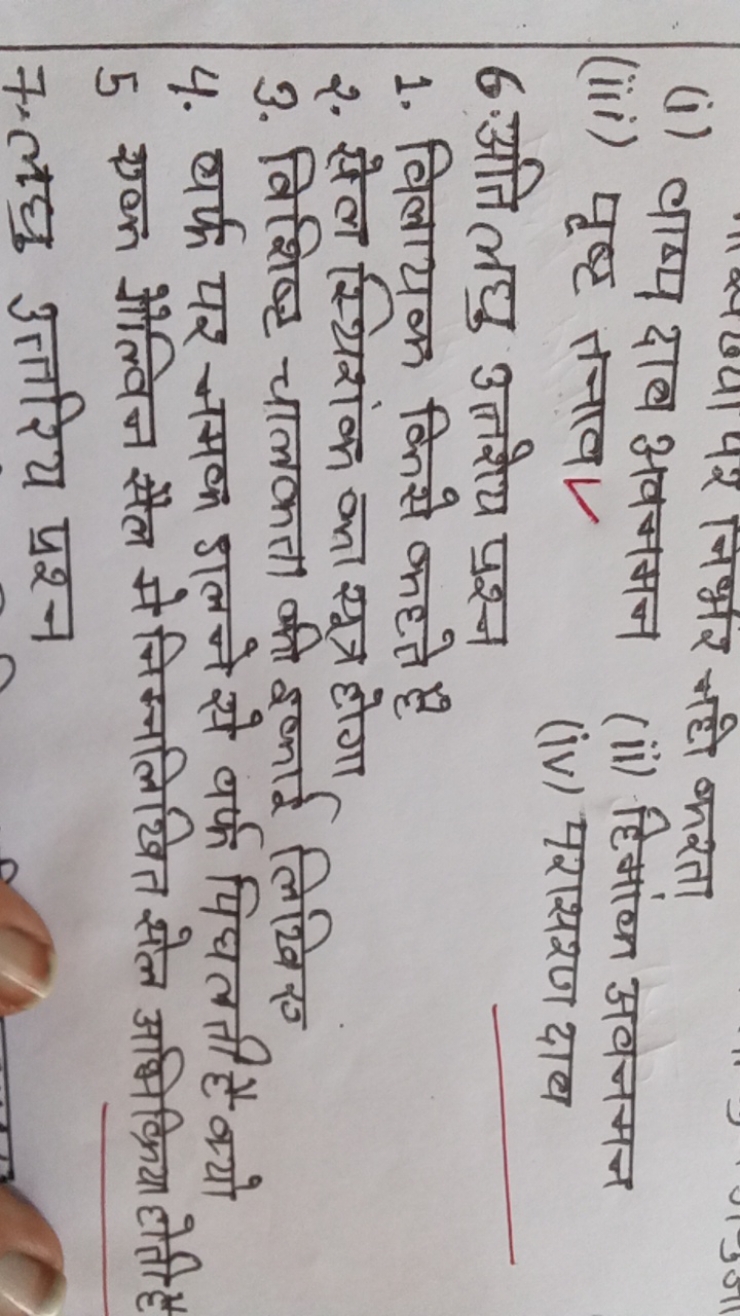 पर निर्भर नही करता
(i) वाष्प दाब अवनमन (ii) हिमांक अवनमन
(iii) पृष्ट तनाव (iv) परासरण दाब
6. अति लघु उत्तरीय प्रश्न
1. विलायक किसे कहते है
२. सेल स्थिरांक का सूत्र होगा
3. विशिष्ट चालकता की इकाई लिखिए
4. बर्फ पर नमक डालने से बर्फ पिघलती है क्यो
5 एक गैल्विन सैल मे निम्नलिखित सेल अभिक्रिया होती है
7. लघु उत्तरिय प्रश्न